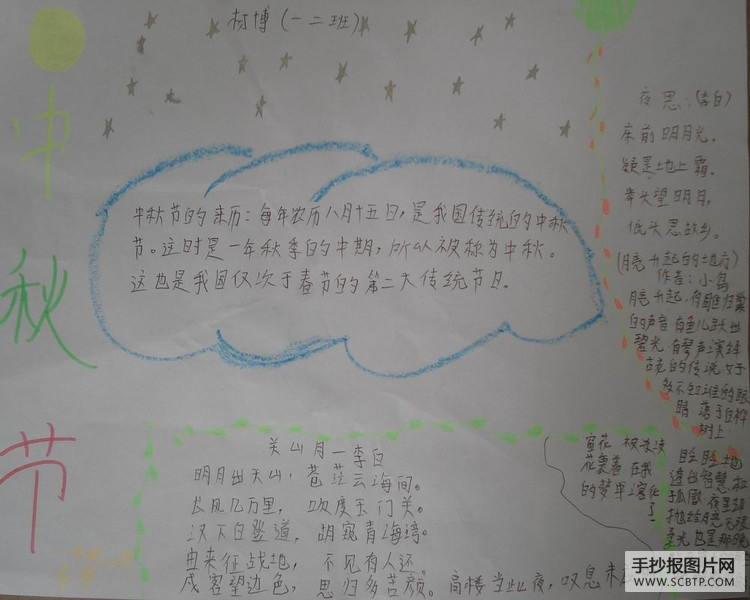 村博(一二班)
中
秋
节
中秋节的来历：每年农历八月十五日，是我国传统的中秋
节。这时是一年秋季的中期，所以被称为中秋。
这也是我国仅次于春节的第二大传统节日。
夜思：(李白)
床前明月光。
疑是地上霜。
举头望明月，
低头思故乡。
(月亮升起的地方)
作者：小岛
月亮升起，有雎归巢
的声音 有鱼儿跃出
碧光 有琴声演绎
古老的传说 大于
的眼
睛 落于白桦
树上
关山月一李白
明月出天山，苍茫云海间。
长风几万里，吹度玉门关。
汉下白登道，胡窥青海湾。
由来征战地，不见有人还。
戍客望边色，思归多苦颜。高楼当此夜，叹息未
窗花
花裹着 在我
的梦里
了
透出智慧
孤傲 夜里
抛给月亮
柔光 也是
手抄报图片网
WWW.SCBTP.COM